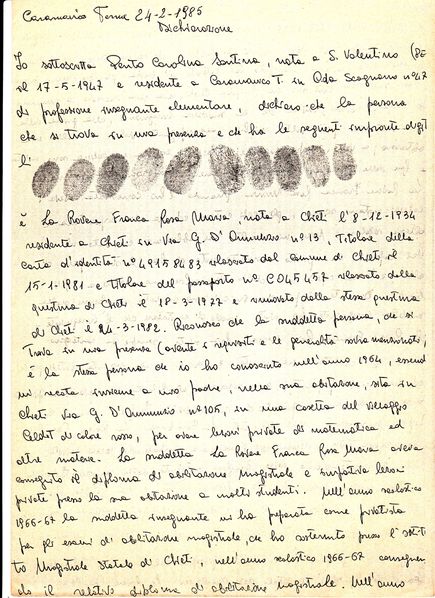 Caramanico Terme 24-2-1985
Dichiarazione
Io sottoscritta Pento Carolina Santina, nata a S. Valentino (PE
il 17-5-1947 e residente a Caramanico T. in C.da Scagnano n° 47
di professione insegnante elementare, dichiaro che la persona
che si trova in mia presenza e che ha le seguenti impronte digit
li
è La Rovere Franca Rosa Maria, nata a Chieti l'8-12-1934
residente a Chieti in Via G. D'Annunzio n° 13, Titolare della
carta d'identità n° 49158483 rilasciato dal comune di Chieti il
15-1-1981 e titolare del passaporto n° C045457 rilasciato dalla
questura di Chieti il 18-3-1977 e rinnovato dalla stessa questura
di Chieti il 24-3-1982. Riconosco che la suddetta persona, che si
trova in mia presenza (avente i requisiti e le generalità sopra menzionate,
è la stessa persona che io ho conosciuto nell'anno 1964, essend
mi recata insieme a mio padre, nella sua abitazione, sita in
Chieti Via G. D'Annunzio n° 105, in una casetta del villaggio
di colore rosso, per avere lezioni private di matematica ed
altre materie. La suddetta La Rovere Franca Rosa Maria aveva
conseguito il diploma di abilitazione magistrale e impartiva lezioni
private presso la sua abitazione a molti studenti. Nell'anno scolastico
1966-67 la suddetta insegnante mi ha preparata come privatista
per gli esami di abilitazione magistrale, che ho sostenuto presso l'Istitu
to Magistrale Statale di Chieti, nell'anno scolastico 1966-67 conseguen
do il relativo diploma di abilitazione magistrale. Nell'anno